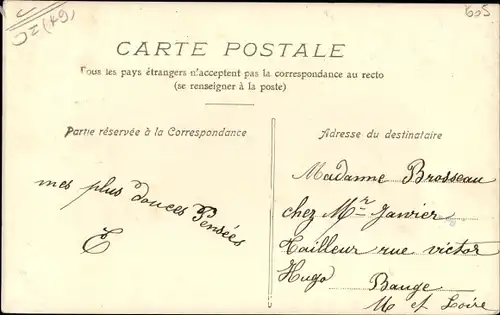 605
CARTE POSTALE
Tous les pays étrangers n'acceptent pas la correspondance au recto
(se renseigner à la poste)
Partie réservée à la Correspondance
Adresse du destinataire
mes plus douces Pensées
E
Madame Brosseau
chez Mr Janvier
Tailleur rue victor
Hugo Bauge
M et Loire